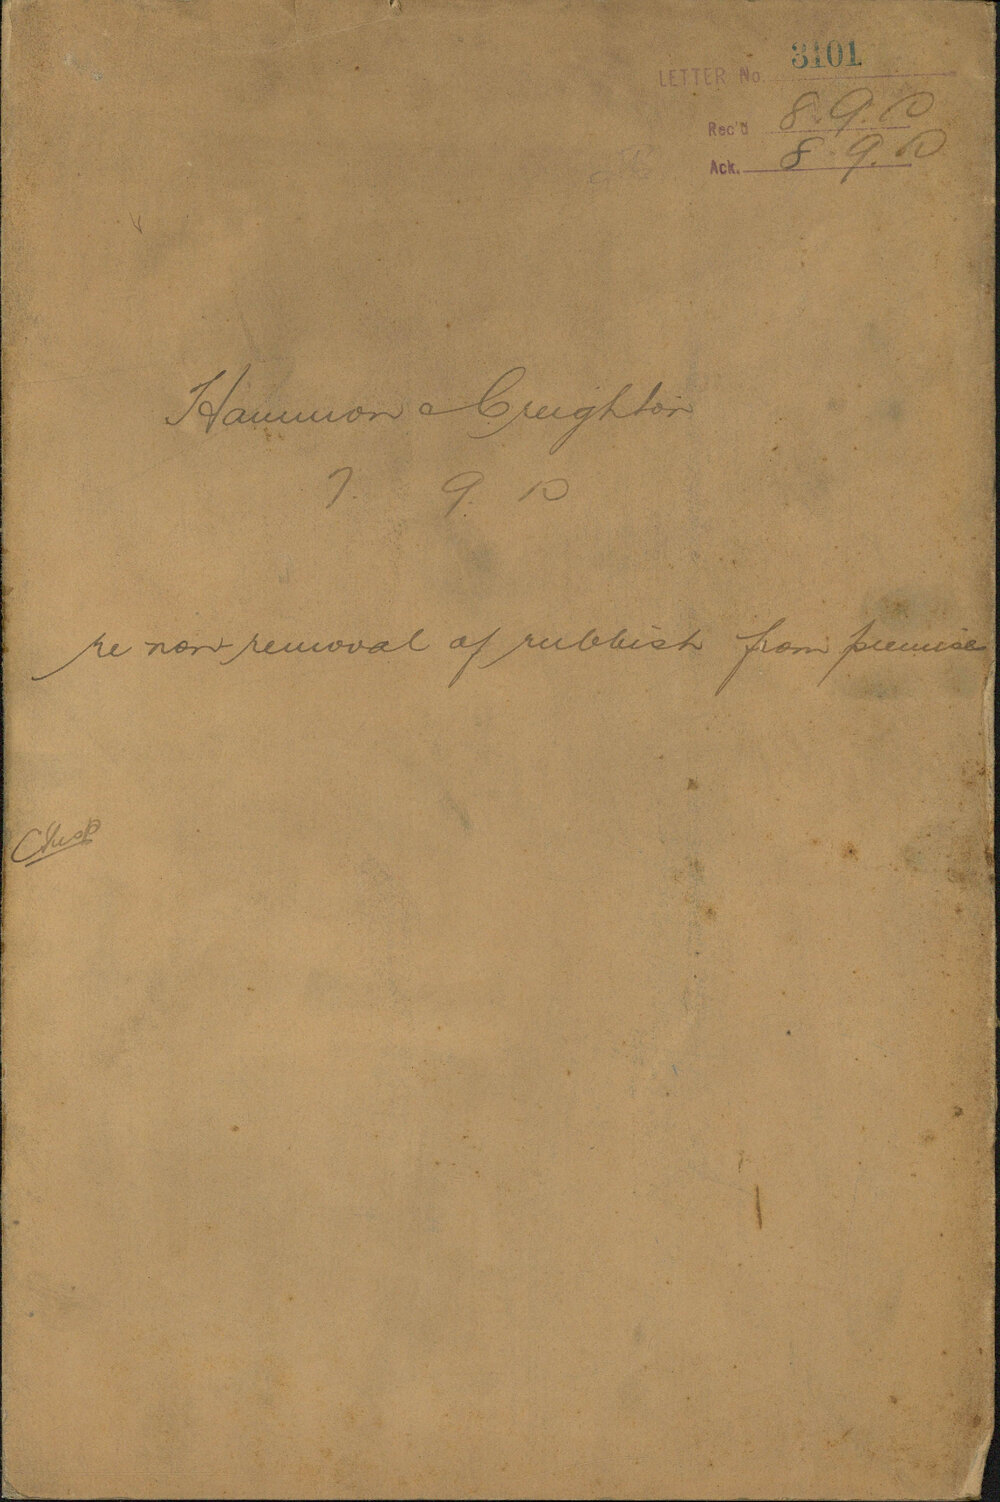 LETTER No. 3101
Rec'd 8.9.10
Ack. 8.9.10
Hammon & Creighton
7. 9. 10
re non removal of rubbish from premise